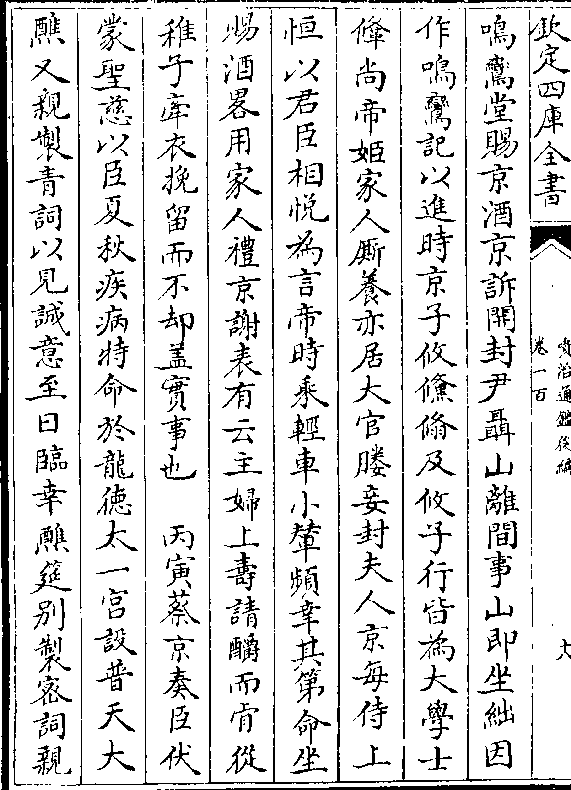 欽定四庫全書
資治通鑑後編
卷一百
六
鳴鸞堂賜京酒京訴開封尹聶山離間事山即坐絀因
作鳴鸞記以進時京子攸儵翛及攸子行皆為大學士
鞗尚帝姬家人厮養亦居大官媵妾封夫人京每侍上
恒以君臣相悦為言帝時乘輕車小輦頻幸其第命坐
賜酒畧用家人禮京謝表有云主婦上壽請釂而肯從
稚子牽衣挽留而不却盖實事也　丙寅蔡京奏臣伏
蒙聖慈以臣夏秋疾病特命於龍德太一宫設普天大
醮又親製青詞以見誠意至日臨幸醮筵别製密詞親